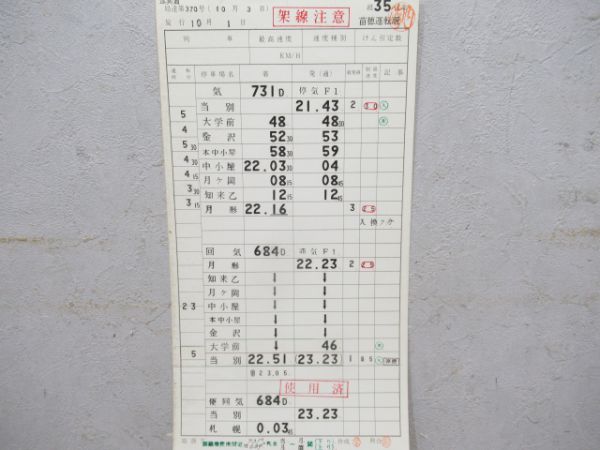 局達第370号(10月3日)
施行10月1日
架線注意
35
苗穂運転所
列車 最高速度 速度種別 けん引定数
KM/H
停車場名 着 発(通) 記事
気 731D 停気F1
当別 21.43 2
5 大学前 48 48
4 金沢 52 30 53
5 30 本中小屋 58 30 59
4 30 中小屋 22.03 30 04
4 15 月ケ岡 08 15 08 45
3 30 知来乙 12 15 12 45
3 15 月形 22.16 3
入換7分
回気 684D 通気F1
月形 22.23 2
知来乙 ↓ ↓
月ケ岡 ↓ ↓
23 中小屋 ↓ ↓
本中小屋 ↓ ↓
金沢 ↓ ↓
大学前 ↓ 46
5 当別 22.51 (23.23) 1 85
23.05
使用済
便回気 684D
当別 23.23
札幌 0.03 45